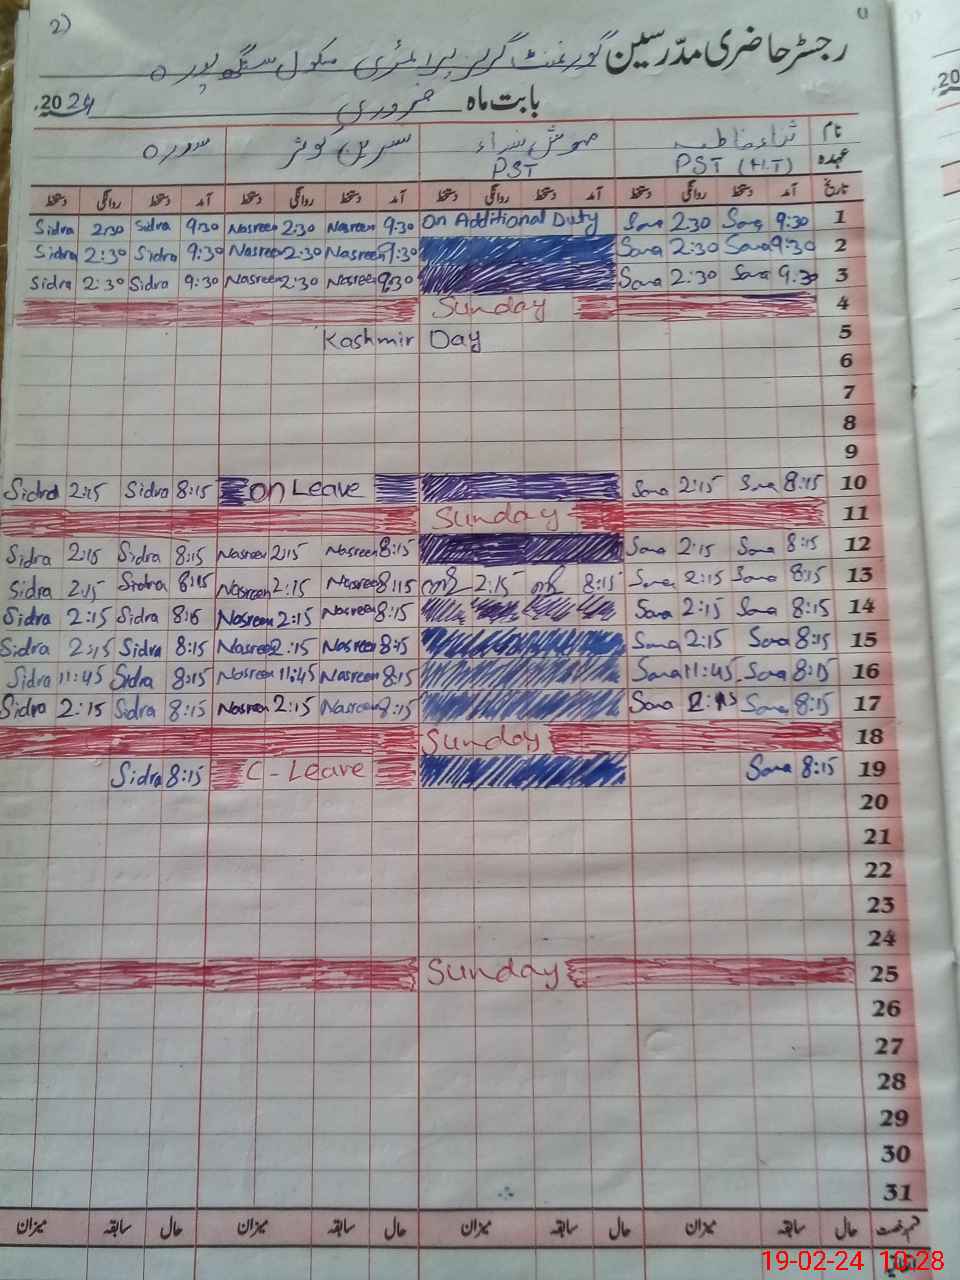 2)
رجسٹر حاضری مدرسین گورنمنٹ گرلز پرائمری سکول سنگھ پورہ
بابت ماہ فروری 2024ء
نام ثناء فاطمہ مہوش نسرین کوثر سدرہ
عہدہ PST (H.T) PST
تاریخ آمد دستخط روانگی دستخط آمد دستخط روانگی دستخط آمد دستخط روانگی دستخط آمد دستخط روانگی دستخط
Sidra 2:30 Sidra 9:30 Nasreen 2:30 Nasreen 9:30 On Additional Duty Sana 2:30 Sana 9:30 1
Sidra 2:30 Sidra 9:30 Nasreen 2:30 Nasreen 9:30 Sana 2:30 Sana 9:30 2
Sidra 2:30 Sidra 9:30 Nasreen 2:30 Nasreen 9:30 Sana 2:30 Sana 9:30 3
Sunday 4
Kashmir Day 5
6
7
8
9
Sidra 2:15 Sidra 8:15 On Leave Sana 2:15 Sana 8:15 10
Sunday 11
Sidra 2:15 Sidra 8:15 Nasreen 2:15 Nasreen 8:15 Sana 2:15 Sana 8:15 12
Sidra 2:15 Sidra 8:15 Nasreen 2:15 Nasreen 8:15 2:15 8:15 Sana 2:15 Sana 8:15 13
Sidra 2:15 Sidra 8:15 Nasreen 2:15 Nasreen 8:15 Sana 2:15 Sana 8:15 14
Sidra 2:15 Sidra 8:15 Nasreen 2:15 Nasreen 8:15 Sana 2:15 Sana 8:15 15
Sidra 11:45 Sidra 8:15 Nasreen 11:45 Nasreen 8:15 Sana 11:45 Sana 8:15 16
Sidra 2:15 Sidra 8:15 Nasreen 2:15 Nasreen 8:15 Sana 2:15 Sana 8:15 17
Sunday 18
Sidra 8:15 C - Leave Sana 8:15 19
20
21
22
23
24
Sunday 25
26
27
28
29
30
31
حال سابقہ میزان حال سابقہ میزان حال سابقہ میزان حال سابقہ میزان
19-02-24 10:28